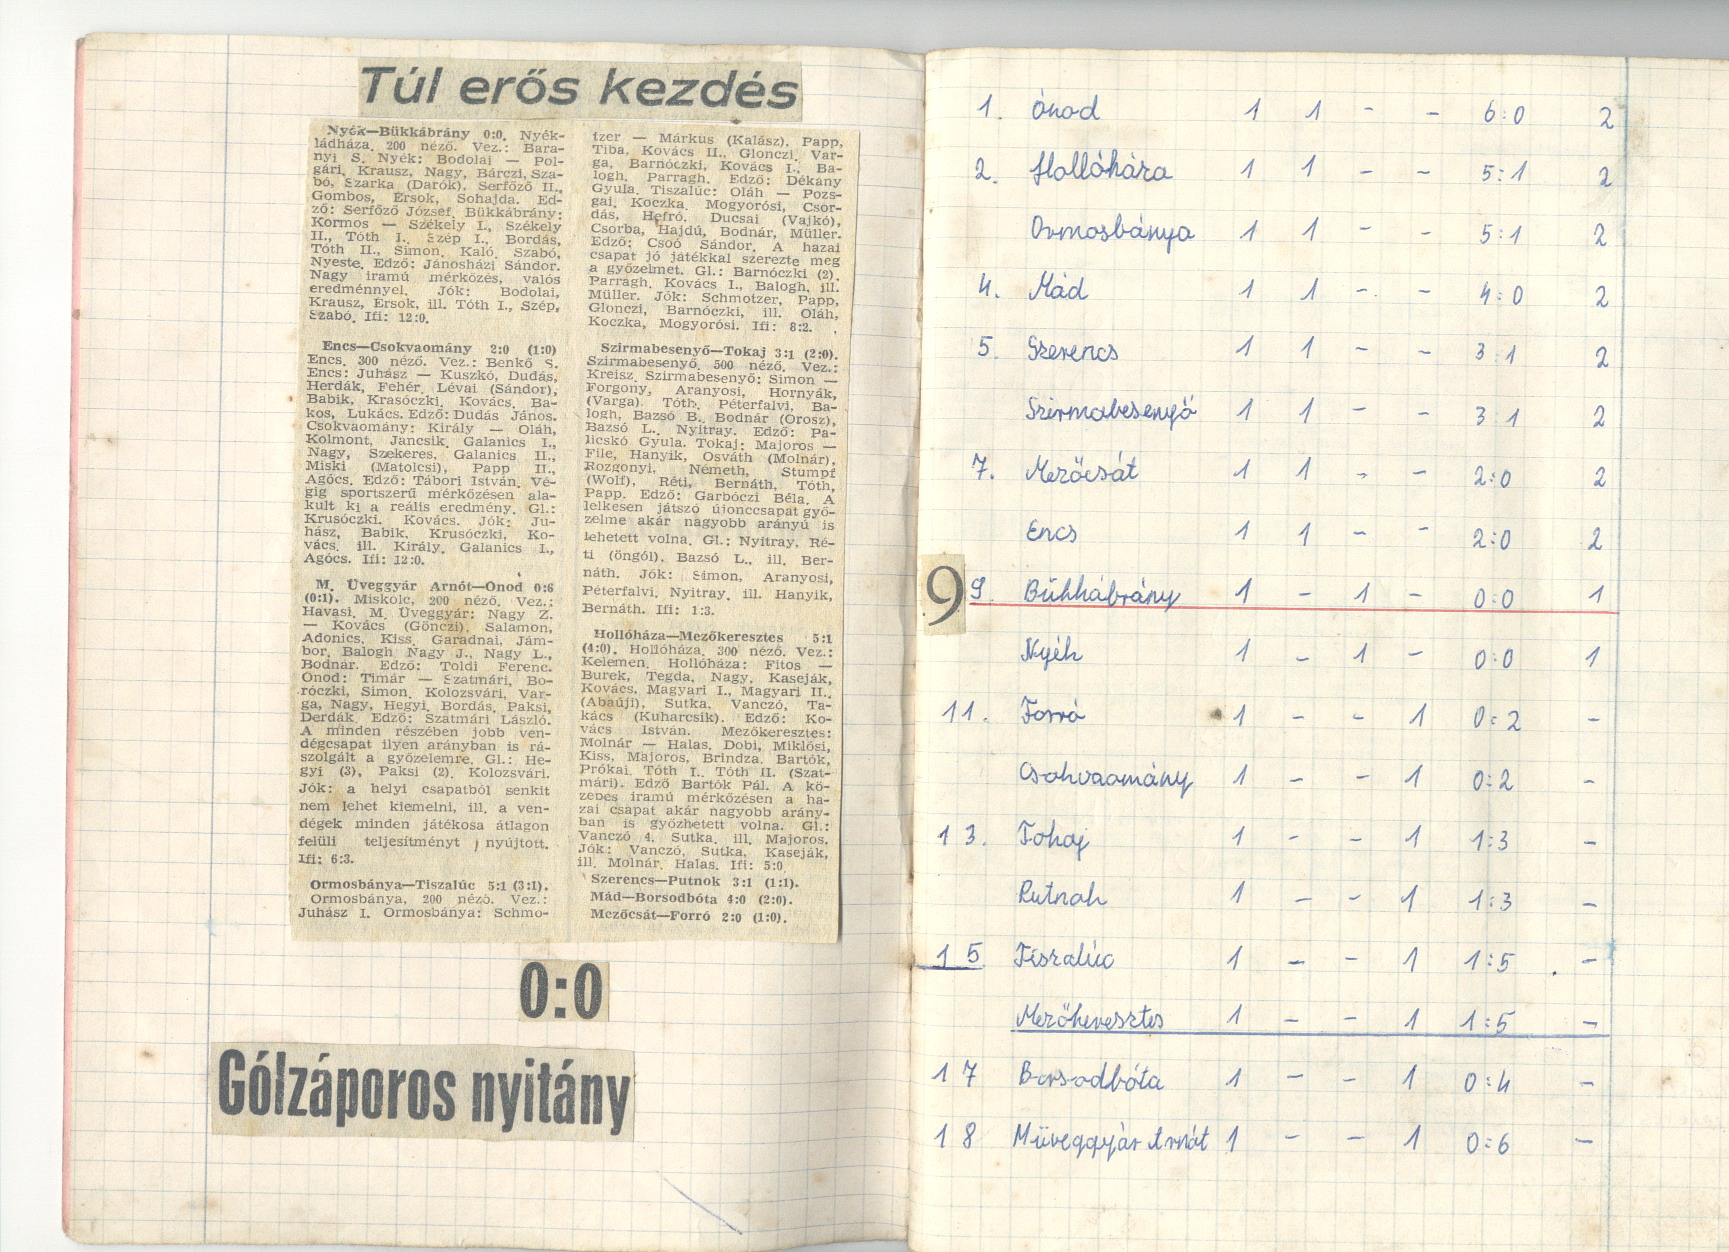 Túl erős kezdés
Nyék—Bükkábrány 0:0. Nyék-
ládháza. 200 néző. Vez.: Bara-
nyi S. Nyék: Bodolai — Pol-
gári, Krausz, Nagy, Bárczi, Sza-
bó, Szarka (Darók), Serfőző II.,
Gombos, Érsok, Sohajda. Ed-
ző: Serfőző József. Bükkábrány:
Kormos — Székely I., Székely
II., Tóth I., Szép I., Bordás,
Tóth II., Simon, Kaló, Szabó,
Nyeste. Edző: Jánosházi Sándor.
Nagy iramú mérkőzés, valós
eredménnyel. Jók: Bodolai,
Krausz, Érsok, ill. Tóth I., Szép,
Szabó. Ifi: 12:0.
Encs—Csokvaomány 2:0 (1:0)
Encs. 300 néző. Vez.: Benkő S.
Encs: Juhász — Kuszkó, Dudás,
Herdák, Fehér, Lévai (Sándor),
Babik, Krasóczki, Kovács, Ba-
kos, Lukács. Edző: Dudás János.
Csokvaomány: Király — Oláh,
Kolmont, Jancsik, Galanics I.,
Nagy, Szekeres, Galanics II.,
Miski (Matolcsi), Papp II.,
Agócs. Edző: Tábori István. Vé-
gig sportszerű mérkőzésen ala-
kult ki a reális eredmény. Gl.:
Krusóczki, Kovács. Jók: Ju-
hász, Babik, Krusóczki, Ko-
vács, ill. Király, Galanics I.,
Agócs. Ifi: 12:0.
M. Üveggyár Arnót—Ónod 0:6
(0:1). Miskolc, 200 néző. Vez.:
Havasi. M. Üveggyár: Nagy Z.
— Kovács (Gönczi), Salamon,
Adonics, Kiss, Garadnai, Jám-
bor, Balogh Nagy J., Nagy L.,
Bodnár. Edző: Toldi Ferenc.
Ónod: Tímár — Szatmári, Bo-
róczki, Simon, Kolozsvári, Var-
ga, Nagy, Hegyi, Bordás, Paksi,
Derdák. Edző: Szatmári László.
A minden részében jobb ven-
dégcsapat ilyen arányban is rá-
szolgált a győzelemre. Gl.: He-
gyi (3), Paksi (2), Kolozsvári.
Jók: a helyi csapatból senkit
nem lehet kiemelni, ill. a ven-
dégek minden játékosa átlagon
felüli teljesítményt nyújtott.
Ifi: 6:3.
Ormosbánya—Tiszalúc 5:1 (3:1).
Ormosbánya, 200 néző. Vez.:
Juhász I. Ormosbánya: Schmo-
tzer — Márkus (Kalász), Papp,
Tiba, Kovács II., Glonczi, Var-
ga, Barnóczki, Kovács I., Ba-
logh, Parragh. Edző: Dékány
Gyula. Tiszalúc: Oláh — Pozs-
gai, Koczka, Mogyorósi, Csor-
dás, Hefró, Ducsai (Vajkó),
Csorba, Hajdú, Bodnár, Müller.
Edző: Csoó Sándor. A hazai
csapat jó játékkal szerezte meg
a győzelmet. Gl.: Barnóczki (2),
Parragh, Kovács I., Balogh, ill.
Müller. Jók: Schmotzer, Papp,
Glonczi, Barnóczki, ill. Oláh,
Koczka, Mogyorósi. Ifi: 8:2.
Szirmabesenyő—Tokaj 3:1 (2:0).
Szirmabesenyő, 500 néző. Vez.:
Kreisz. Szirmabesenyő: Simon —
Forgony, Aranyosi, Hornyák,
(Varga), Tóth, Péterfalvi, Ba-
logh, Bazsó B., Bodnár (Orosz),
Bazsó L., Nyitray. Edző: Pa-
licskó Gyula. Tokaj: Majoros —
File, Hanyik, Osváth (Molnár),
Rozgonyi, Németh, Stumpf
(Wolf), Réti, Bernáth, Tóth,
Papp. Edző: Garbóczi Béla. A
lelkesen játszó újonccsapat győ-
zelme akár nagyobb arányú is
lehetett volna. Gl.: Nyitray, Ré-
ti (öngól), Bazsó L., ill. Ber-
náth. Jók: Simon, Aranyosi,
Péterfalvi, Nyitray, ill. Hanyik,
Bernáth. Ifi: 1:3.
Hollóháza—Mezőkeresztes 5:1
(4:0). Hollóháza, 300 néző. Vez.:
Kelemen. Hollóháza: Fitos —
Burek, Tegda, Nagy, Kaseják,
Kovács, Magyari I., Magyari II.,
(Abaúji), Sutka, Vanczó, Ta-
kács (Kuharcsik). Edző: Ko-
vács István. Mezőkeresztes:
Molnár — Halas, Dobi, Miklósi,
Kiss, Majoros, Brindza, Bartók,
Prókai, Tóth I., Tóth II. (Szat-
mári). Edző Bartók Pál. A kö-
zepes iramú mérkőzésen a ha-
zai csapat akár nagyobb arány-
ban is győzhetett volna. Gl.:
Vanczó 4, Sutka, ill. Majoros.
Jók: Vanczó, Sutka, Kaseják,
ill. Molnár, Halas. Ifi: 5:0.
Szerencs—Putnok 3:1 (1:1).
Mád—Borsodbóta 4:0 (2:0).
Mezőcsát—Forró 2:0 (1:0).
0:0
Gólzáporos nyitány
1. Ónod 1 1 - - 6:0 2
2. Hollóháza 1 1 - - 5:1 2
Ormosbánya 1 1 - - 5:1 2
4. Mád 1 1 - - 4:0 2
5. Szerencs 1 1 - - 3:1 2
Szirmabesenyő 1 1 - - 3:1 2
7. Mezőcsát 1 1 - - 2:0 2
Encs 1 1 - - 2:0 2
9 9. Bükkábrány 1 - 1 - 0:0 1
Nyék 1 - 1 - 0:0 1
11. Forró 1 - - 1 0:2 -
Csokvaomány 1 - - 1 0:2 -
13. Tokaj 1 - - 1 1:3 -
Putnok 1 - - 1 1:3 -
15 Tiszalúc 1 - - 1 1:5 -
Mezőkeresztes 1 - - 1 1:5 -
17 Borsodbóta 1 - - 1 0:4 -
18 Müveggyár Arnót 1 - - 1 0:6 -